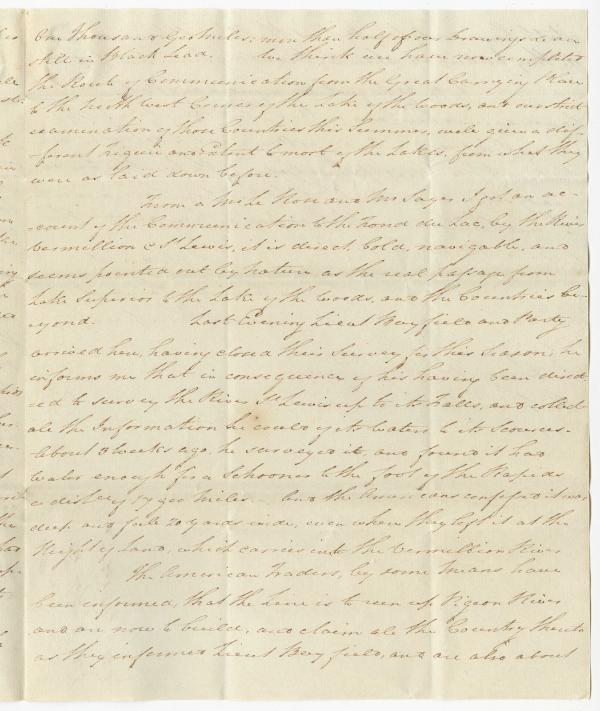 One Thousand & Geo Miles: more than half of our Drawings are
still in Black Lead. We think we have now completed
the Route of Communication from the Great Carrying Place
to the North West Corner of the Lake of the Woods, and our strict
examination of those Countries this Summer, will give a dif-
ferent Figure and extent to most of the Lakes, from what they
were as laid down before.
From a Mr Le Roue and Mr Sayer I got an ac-
-count of the Communication to the Fond du Lac, by the River
Vermillion & St Lewis, it is direct, bold, navigable, and
seems pointed out by nature as the real passage from
Lake Superior to the Lake of the Woods, and the Countries be-
-yond. Last Evening Lieut Bayfield and Party
arrived here, having closed their Survey for this Season; he
informs me that in consequence of his having been direct-
-ed to survey the River St Lewis up to its Falls, and collect
all the Information he could of its waters to its Sources.
About weeks ago, he surveyed it, and found it had
water enough for a Schooner to the foot of the Rapids
a distce of geo Miles - and the Americans confessed it was
deep and full 20 yards wide, even where they left it at the
Height of Land, which carries into the Vermillion River
The American Traders, by some means have
been informed, that the Line is to run up Pigeon River
and are now to build, and claim all the Country thereto
as they informed Lieut Bayfield, and are also about